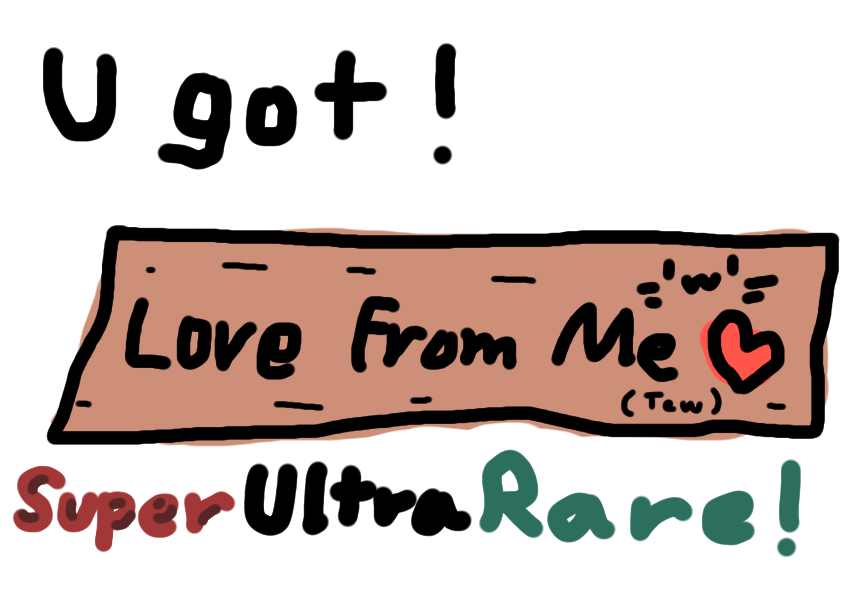 U got !
'w'
Love From Me
(Tew)
Super Ultra Rare!